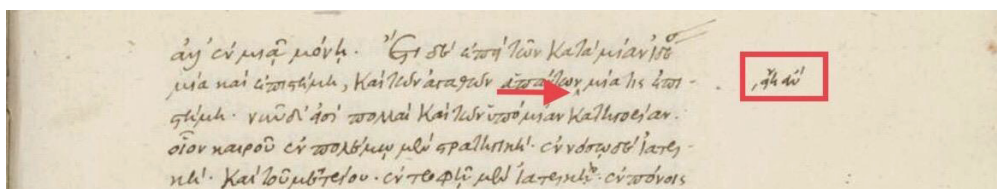 ἀλλ' ἐν μιᾷ μόνῃ. Ἔτι δ' ἐπεὶ τῶν κατὰ μίαν ἰδέαν
μία καὶ ἐπιστήμη, καὶ τῶν ἀγαθῶν ἁπάντων μία τις ἐπι-
ἦν ἂν
στήμη· νῦν δ' εἰσὶ πολλαὶ καὶ τῶν ὑπὸ μίαν κατηγορίαν.
οἷον καιροῦ ἐν πολέμῳ μὲν στρατηγική· ἐν νόσῳ δὲ ἰατρι-
κή· καὶ τοῦ μετρίου· ἐν τροφῇ μὲν ἰατρική· ἐν πόνοις